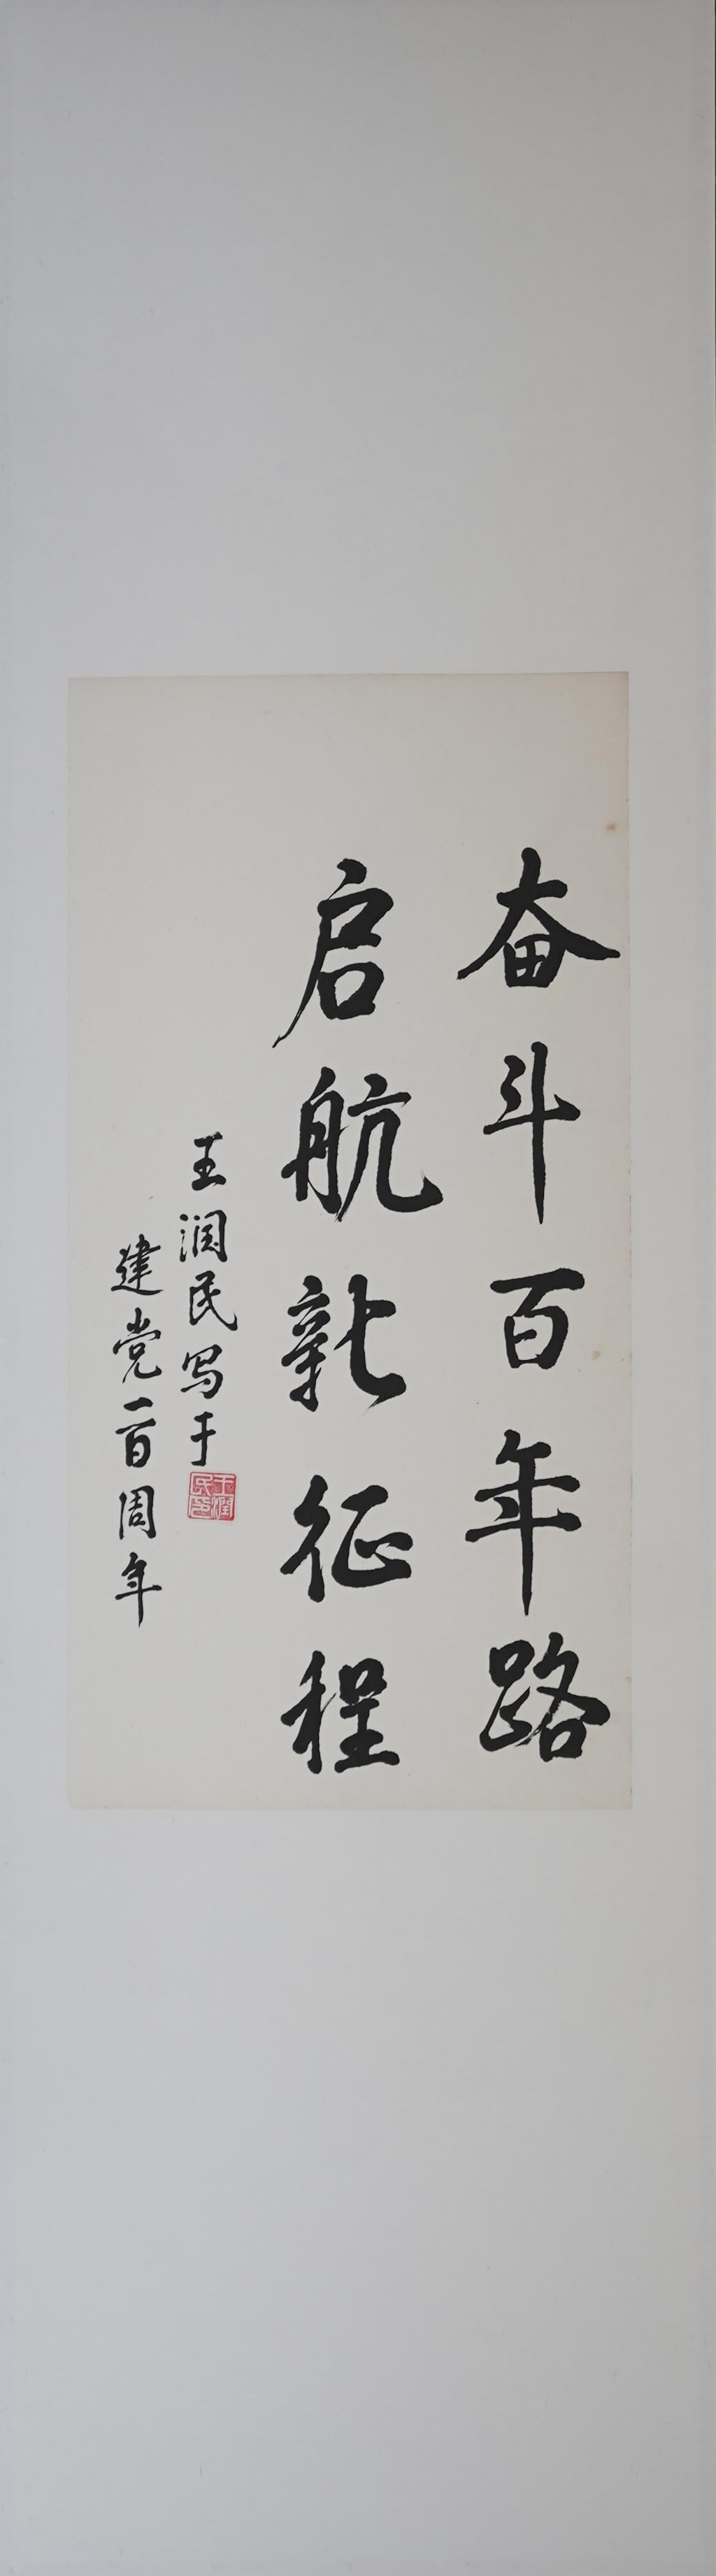 奋斗百年路
启航新征程
王润民写于
建党一百周年
王润民印